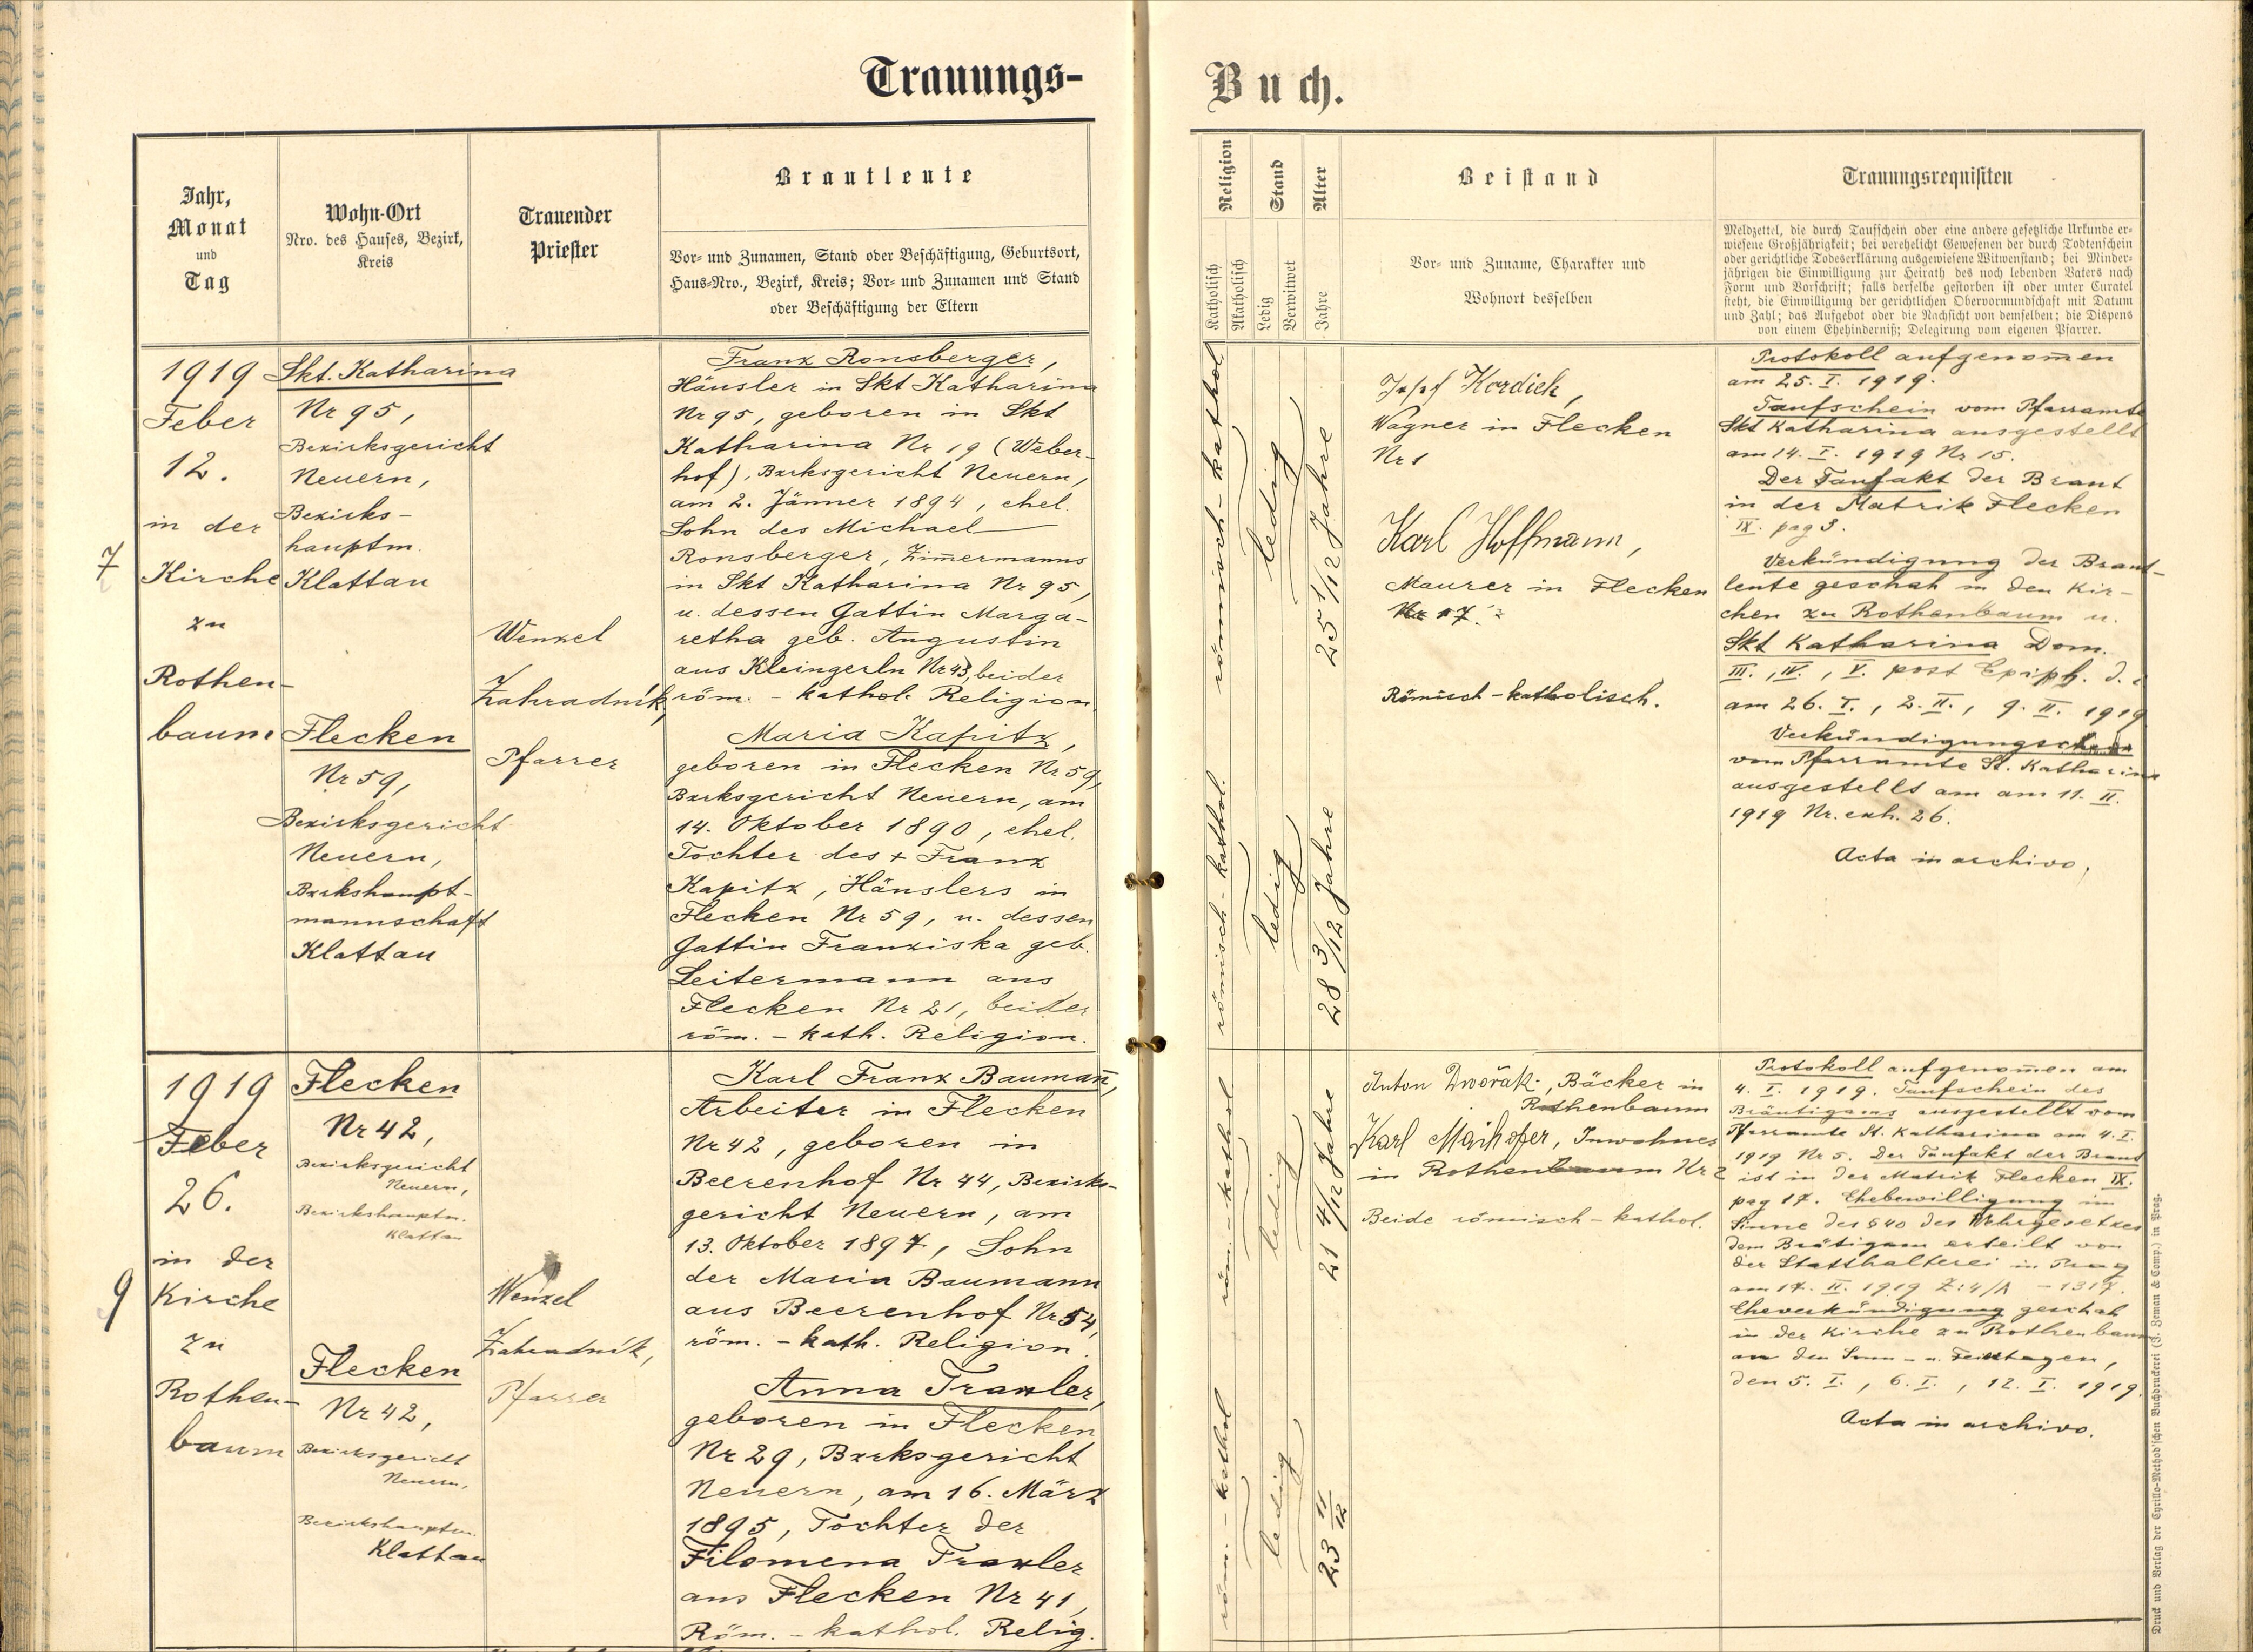 Trauungs-
Buch.
Jahr,
Monat
und
Tag
Wohn-Ort
Nro. des Hauses, Bezirk,
Kreis
Trauender
Priester
Brautleute
Vor- und Zunamen, Stand oder Beschäftigung, Geburtsort,
Haus-Nro., Bezirk, Kreis; Vor- und Zunamen und Stand
oder Beschäftigung der Eltern
Religion
Katholisch
Akatholisch
Stand
Ledig
Verwitwet
Alter
Jahre
Beistand
Vor- und Zuname, Charakter und
Wohnort desselben
Trauungsrequisiten
Meldzettel, die durch Taufschein oder eine andere gesetzliche Urkunde er-
wiesene Großjährigkeit; bei verehelicht Gewesenen der durch Todtenschein
oder gerichtliche Todeserklärung ausgewiesene Witwenstand; bei Minder-
jährigen die Einwilligung zur Heirath des noch lebenden Vaters nach
Form und Vorschrift; falls derselbe gestorben ist oder unter Curatel
steht, die Einwilligung der gerichtlichen Obervormundschaft mit Datum
und Zahl; das Aufgebot oder die Nachsicht von demselben; die Dispens
von einem Ehehinderniß; Delegirung vom eigenen Pfarrer.
7
1919
Feber
12.
in der
Kirche
zu
Rothen-
baum
Skt. Katharina
Nr 95,
Bezirksgericht
Neuern,
Bezirks-
hauptm.
Klattau
Flecken
Nr 59,
Bezirksgericht
Neuern,
Bzrkshaupt-
mannschaft
Klattau
Wenzel
Zahradník,
Pfarrer
Franz Ronsberger,
Häusler in Skt Katharina
Nr 95, geboren in Skt
Katharina Nr 19 (Weber-
hof), Bzrksgericht Neuern,
am 2. Jänner 1894, ehel.
Sohn des Michael
Ronsberger, Zim̄ermanns
in Skt Katharina Nr 95,
u. dessen Gattin Marga-
retha geb. Augustin
aus Kleingerln Nr 43, beider
röm. - kathol. Religion.
Maria Kapitz,
geboren in Flecken Nr 59,
Bzrksgericht Neuern, am
14. Oktober 1890, ehel.
Tochter des + Franz
Kapitz, Häuslers in
Flecken Nr 59, u. dessen
Gattin Franziska geb.
Leitermann aus
Flecken Nr 21, beider
röm. - kath. Religion.
römisch-kathol
ledig
25 1/12 Jahre
römisch-kathol.
ledig
28 3/12 Jahre
Josef Kordick,
Wagner in Flecken
Nr 1
Karl Hoffmann,
Maurer in Flecken
Nr 17.
Römisch-katholisch.
Protokoll aufgenom̄en
am 25. I. 1919.
Taufschein vom Pfarramte
Skt Katharina ausgestellt
am 14. I. 1919 Nr 15.
Der Taufakt der Braut
in der Matrik Flecken
IX. pag 3.
Verkündigung der Braut-
leute geschah in den Kir-
chen zu Rothenbaum u.
Skt Katharina Dom.
III., IV., V. post Epiph. d. i
am 26. I., 2. II., 9. II. 1919
Verkündigungschein
vom Pfarramte St. Katharina
ausgestellt am am 11. II.
1919 Nr. exh. 26.
Acta in archivo.
9
1919
Feber
26.
in der
Kirche
zu
Rothen-
baum
Flecken
Nr 42,
Bezirksgericht
Neuern,
Bezirkshauptm.
Klattau
Flecken
Nr 42,
Bezirksgericht
Neuern,
Bezirkshauptm.
Klattau
Wenzel
Zahradník,
Pfarrer
Karl Franz Bauman̄,
Arbeiter in Flecken
Nr 42, geboren in
Beerenhof Nr 44, Bezirks-
gericht Neuern, am
13. Oktober 1897, Sohn
der Maria Baumann
aus Beerenhof Nr 54,
röm. - kath. Religion.
Anna Traxler,
geboren in Flecken
Nr 29, Bzrksgericht
Neuern, am 16. März
1895, Tochter der
Filomena Traxler
aus Flecken Nr 41,
Röm. - kathol. Relig.
röm. - kathol
ledig
21 4/12 Jahre
röm. - kathol
ledig
23 11/12
Anton Dwořak, Bäcker in
Rothenbaum
Karl Maihofer, Inwohner
in Rothenbaum Nr 2
Beide römisch-kathol.
Protokoll aufgenom̄en am
4. I. 1919. Taufschein des
Bräutigams ausgestellt vom
Pfarramte St. Katharina am 4. I.
1919 Nr 5. Der Taufakt der Braut
ist in der Matrik Flecken IX.
pag 17. Ehebewilligung im
Sinne des § 40 des Wehrgesetzes
dem Brätigam erteilt von
der Statthalterei in Prag
am 17. II. 1919 Z: 4/A - 1317.
Eheverkündigung geschah
in der Kirche zu Rothenbaum
an den Sonn- u. Feiertagen,
den 5. I., 6. I., 12. I. 1919.
Acta in archivo.
Druck und Verlag der Cyrillo-Method'schen Buchdruckerei (J. Zeman & Comp.) in Prag.